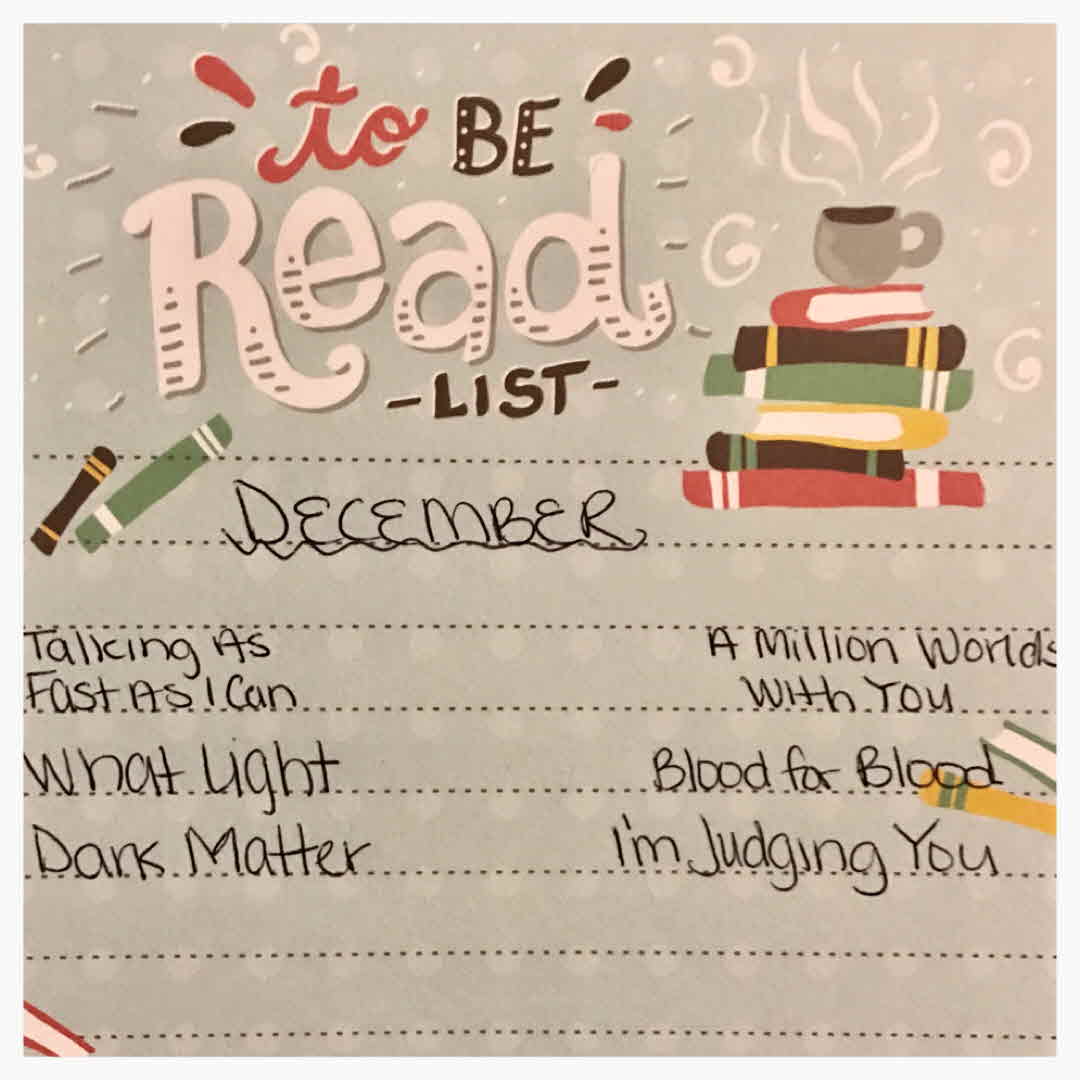 to BE
Read
-LIST-
DECEMBER
Talking As
Fast As I Can
What Light
Dark Matter
A Million Worlds
With You
Blood for Blood
I'm Judging You